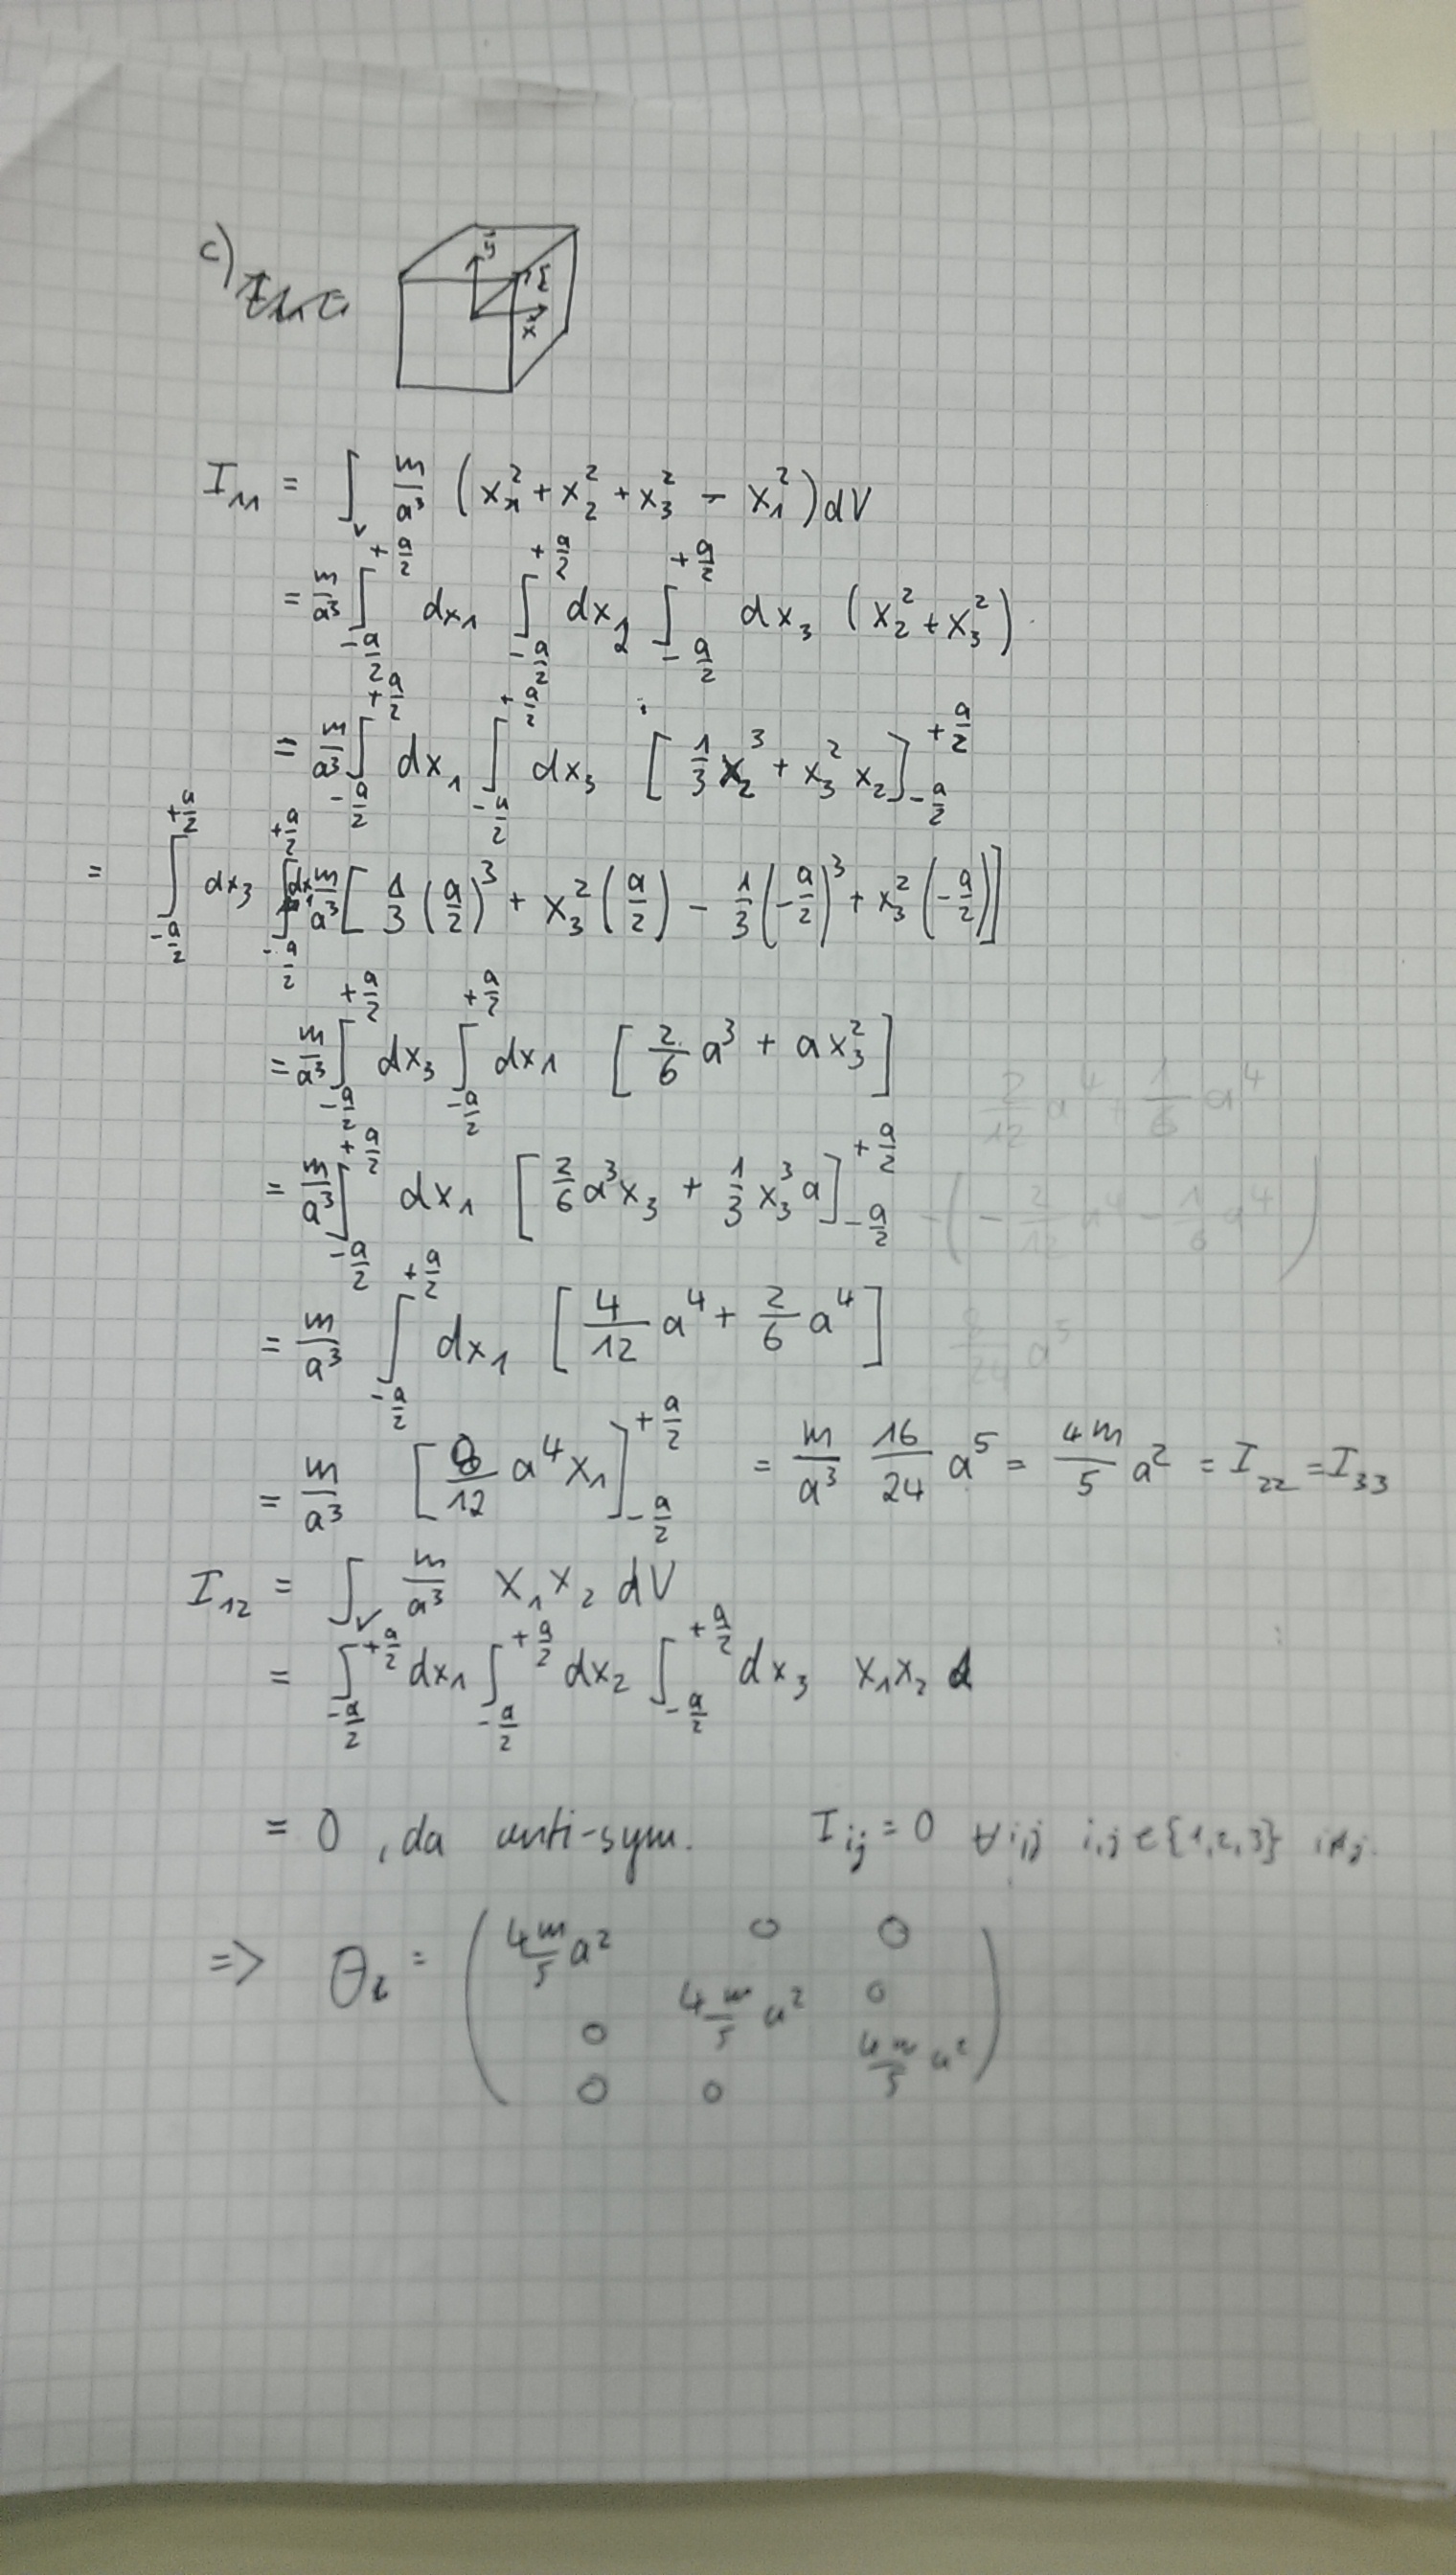 c)
y z
x
I₁₁ = ∫_V m/a³ (x₁² + x₂² + x₃² − x₁²) dV
= m/a³ ∫_{-a/2}^{+a/2} dx₁ ∫_{-a/2}^{+a/2} dx₂ ∫_{-a/2}^{+a/2} dx₃ (x₂² + x₃²)
= m/a³ ∫_{-a/2}^{+a/2} dx₁ ∫_{-a/2}^{+a/2} dx₃ [1/3 x₂³ + x₃² x₂]_{-a/2}^{+a/2}
= ∫_{-a/2}^{+a/2} dx₃ ∫_{-a/2}^{+a/2} dx₁ m/a³ [1/3 (a/2)³ + x₃² (a/2) − 1/3 (−a/2)³ + x₃² (−a/2)]
= m/a³ ∫_{-a/2}^{+a/2} dx₃ ∫_{-a/2}^{+a/2} dx₁ [2/6 a³ + a x₃²]
= m/a³ ∫_{-a/2}^{+a/2} dx₁ [2/6 a³ x₃ + 1/3 x₃³ a]_{-a/2}^{+a/2}
= m/a³ ∫_{-a/2}^{+a/2} dx₁ [4/12 a⁴ + 2/6 a⁴]
= m/a³ [8/12 a⁴ x₁]_{-a/2}^{+a/2} = m/a³ 16/24 a⁵ = 4m/5 a² = I₂₂ = I₃₃
I₁₂ = ∫_V m/a³ x₁ x₂ dV
= ∫_{-a/2}^{+a/2} dx₁ ∫_{-a/2}^{+a/2} dx₂ ∫_{-a/2}^{+a/2} dx₃ x₁ x₂ d
= 0 , da anti-sym. I_ij = 0 ∀ i,j i,j ∈ {1,2,3} i≠j.
=> θ = ( 4m/5 a² 0 0
0 4m/5 a² 0
0 0 4m/5 a² )